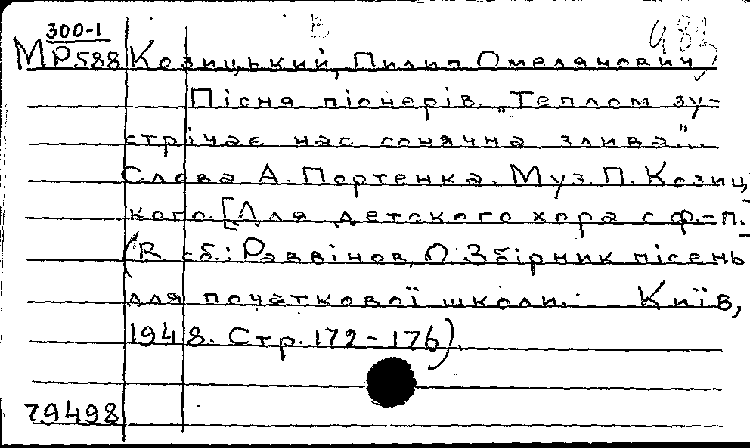 300-1 В 983
МР588 Козицький, Пилип Омелянович,
Пісня піонерів. „Теплом зу-
стрічає нас сонячна злива"..
Слова А. Портенка. Муз. П. Козиц
кого. [Для детского хора с ф.-п.]
(В сб: Раввінов, О. Збірник пісень
для початкової школи. Київ,
1948. Стр. 172-176)
79498